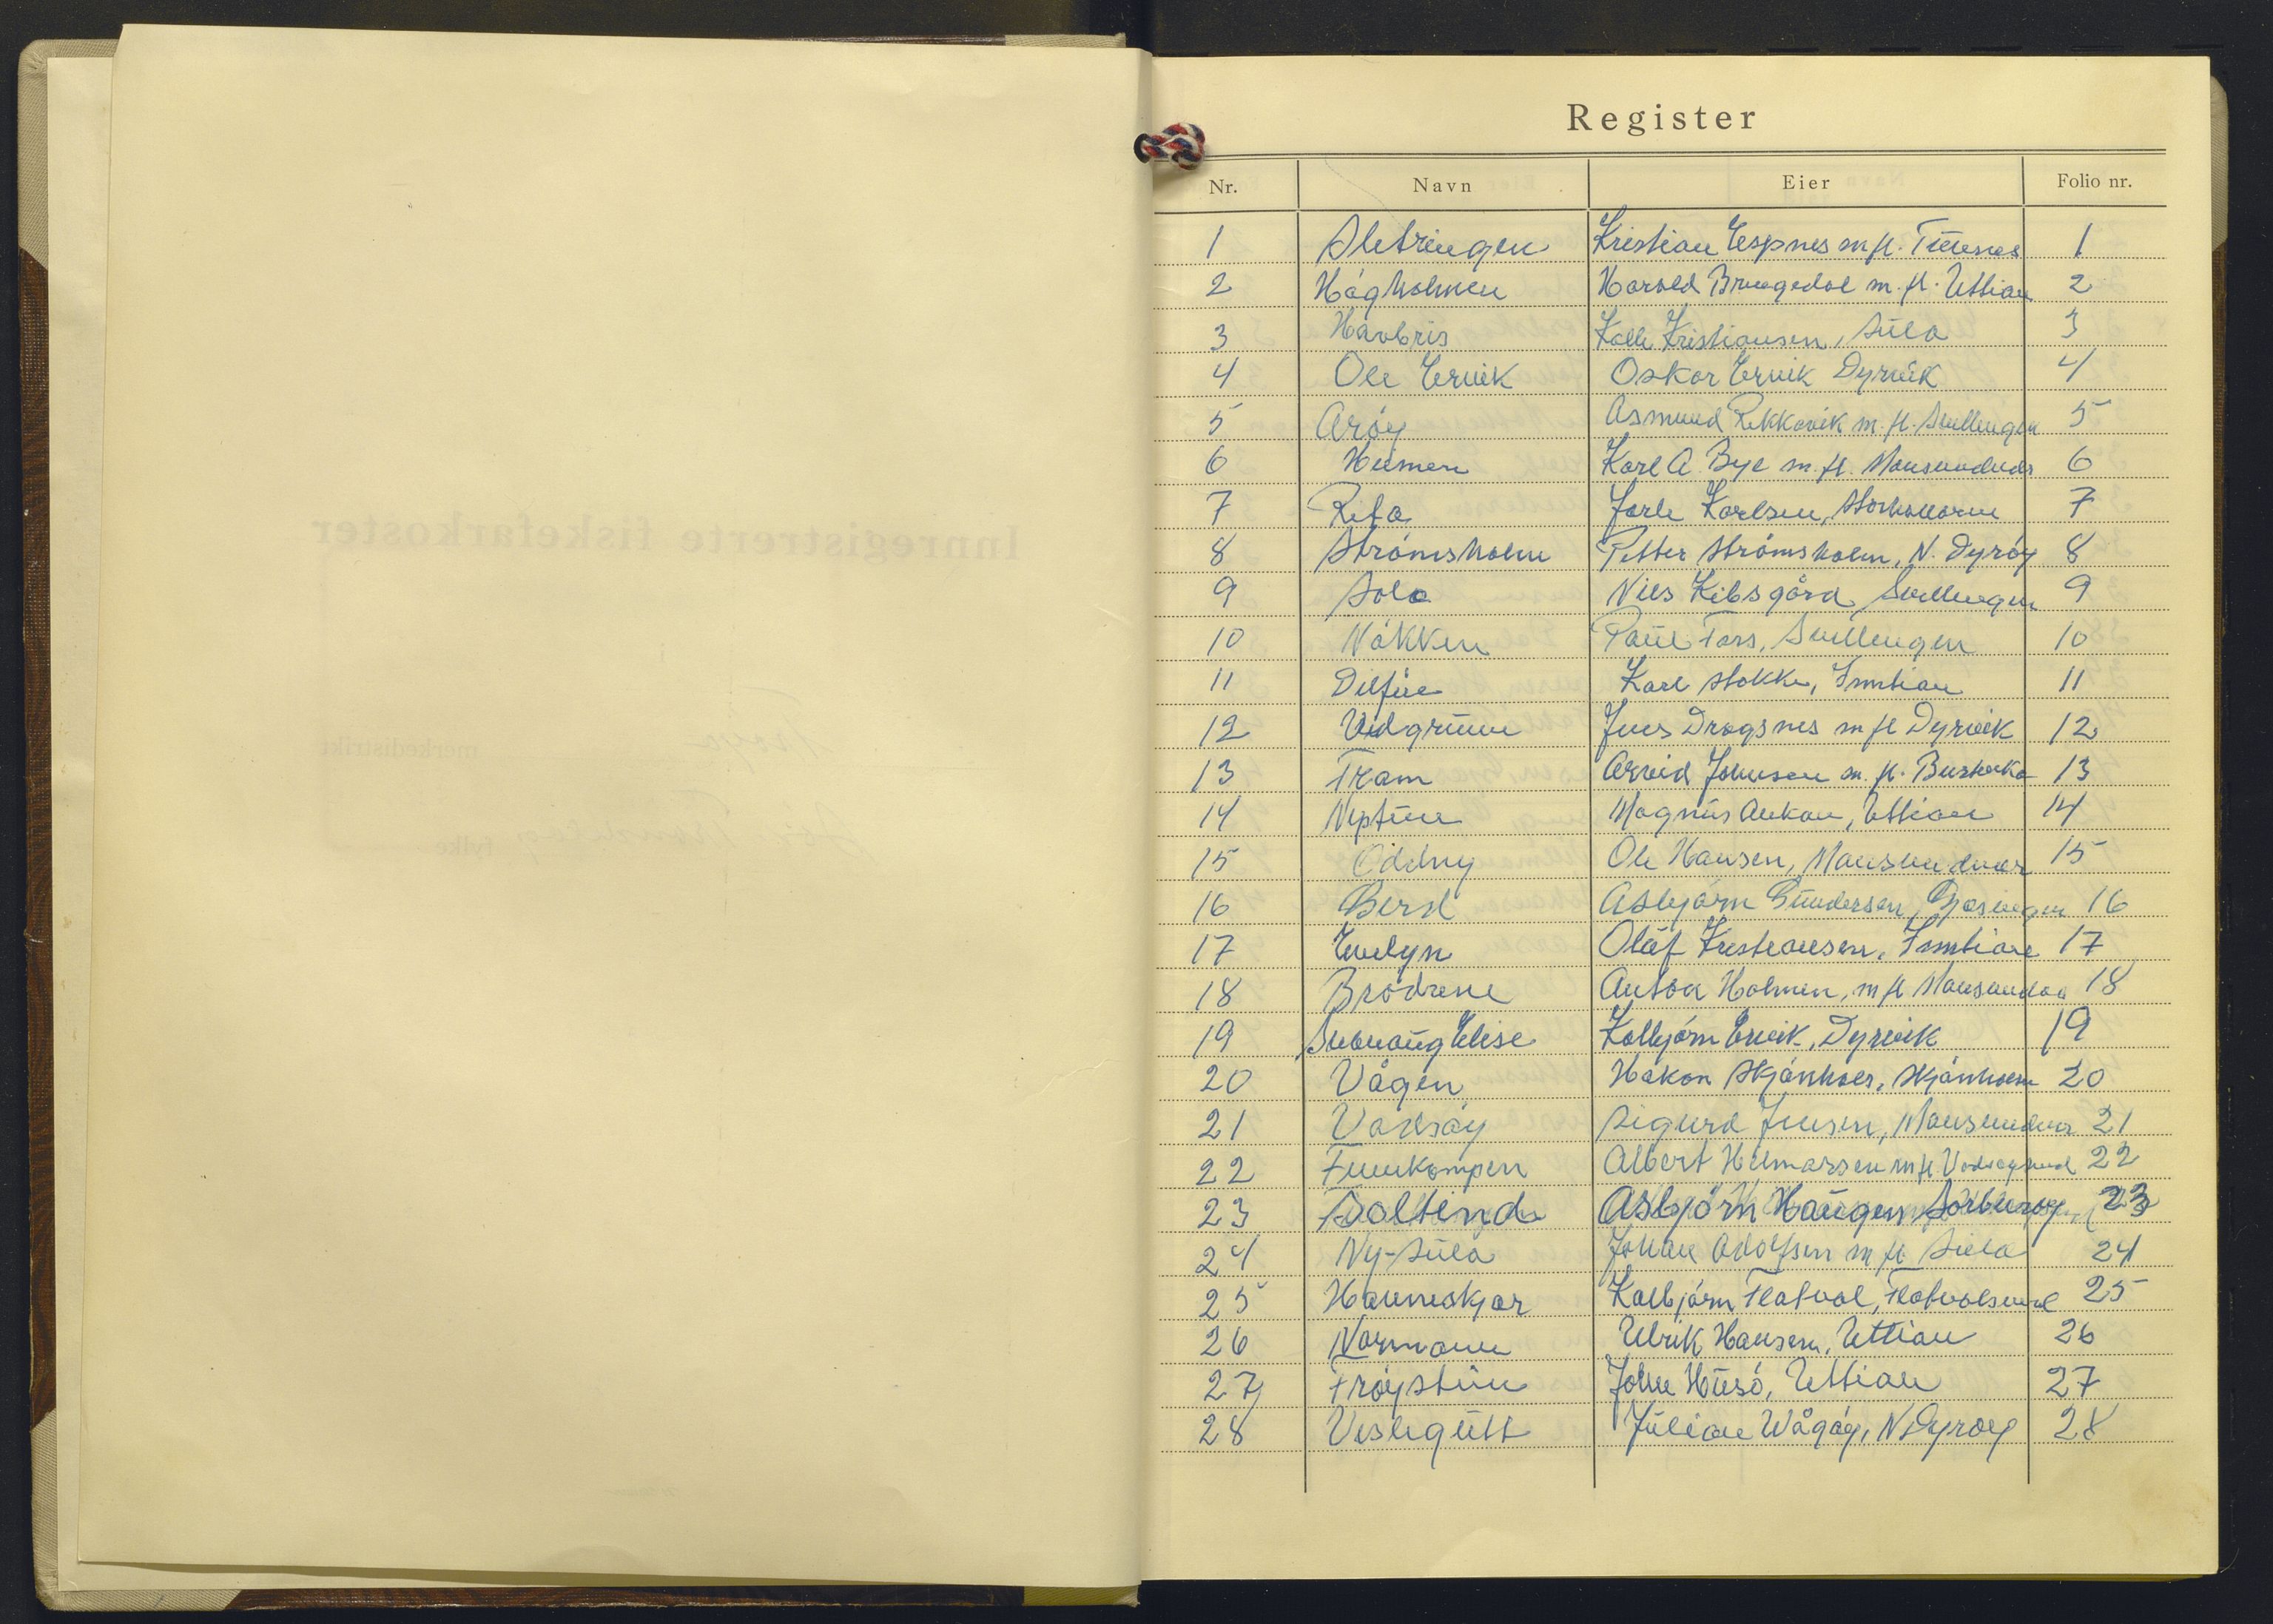 Register
Nr. Navn Eier Folio nr.
1 Sletringen Kristian Espnes m.fl. Titrnes 1
2 Hågholmen Harald Bringedal m.fl. Uttian 2
3 Havbris Kolb. Kristiansen, Sula 3
4 Ole Ervik Oskar Ervik Dyrvik 4
5 Arøy Asmund Rekkavik m.fl. Svellingen 5
6 Heimen Karl A. Bye m.fl. Mausundvær 6
7 Refa Jarle Karlsen, Storhallaren 7
8 Strømsholm Petter Strømsholm, N. Dyrøy 8
9 Sola Nils Kibsgård, Svellingen 9
10 Nøkken Paul Fors, Svellingen 10
11 Delfin Karl Stokke, Inntian 11
12 Vidgrunn Jens Dragsnes m fl Dyrvik 12
13 Fram Arvid Johnsen m.fl. Buskøka 13
14 Neptun Magnus Aukan, Uttian 14
15 Oddny Ole Hansen, Mausundvær 15
16 Berd Asbjørn Gundersen, Gjæsingen 16
17 Evelyn Olaf Kristiansen, Inntian 17
18 Brødrene Anton Holmen, m fl Mausundvær 18
19 Svanaug Elise Kolbjørn Ervik, Dyrvik 19
20 Vågen Håkon Skjønhals, Skjønhals 20
21 Vadsøy Sigurd Jensen, Mausundvær 21
22 Finnkampen Albert Hilmarsen m.fl. Vadsøysund 22
23 Soltind Asbjørn Haugen Sørburøy 23
24 Ny-Sula Johan Adolfsen m fl. Sula 24
25 Havneskjær Kolbjørn Flatval, Flatvalsund 25
26 Normann Ulrik Hansen, Uttian 26
27 Frøystun Johan Husø, Uttian 27
28 Veslegutt Julian Wågøy, N Dyrøy 28
Innregistrerte fiskefarkoster
Frøya merkedistrikt
Sør-Trøndelag fylke